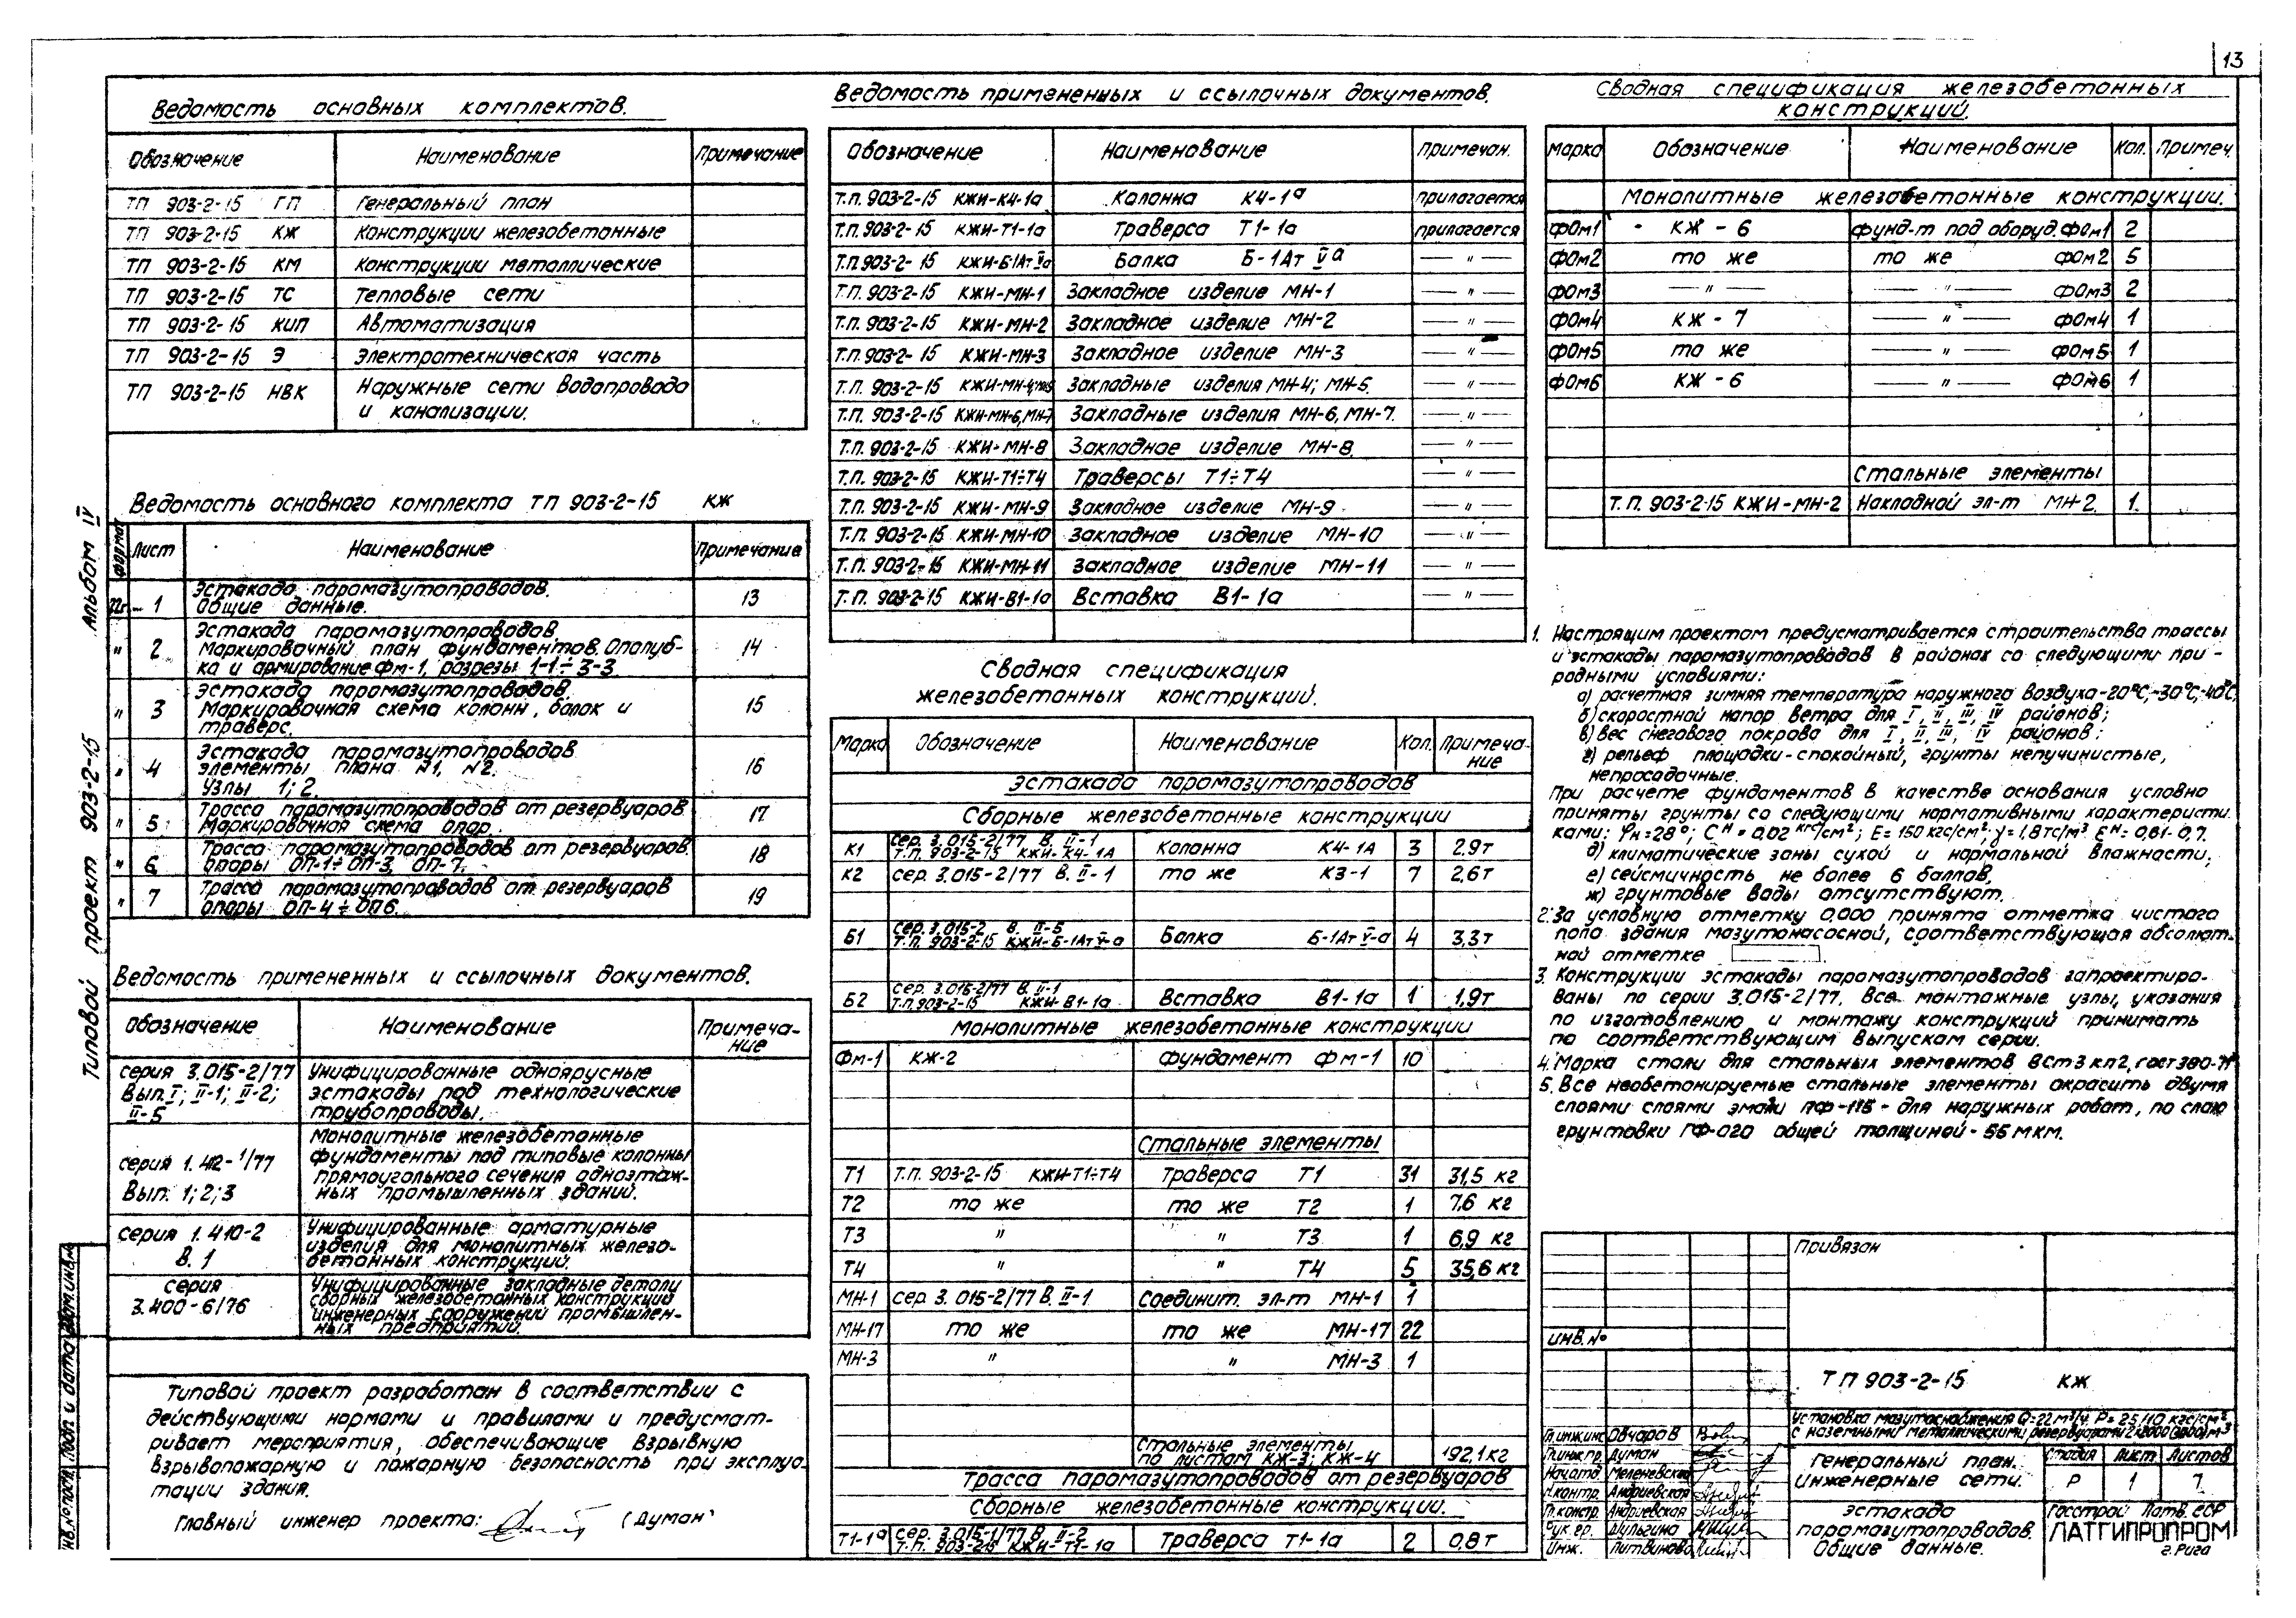 13
Ведомость основных комплектов.
Обозначение Наименование Примечание
ТП 903-2-15 ГП Генеральный план
ТП 903-2-15 КЖ Конструкции железобетонные
ТП 903-2-15 КМ Конструкции металлические
ТП 903-2-15 ТС Тепловые сети
ТП 903-2-15 КИП Автоматизация
ТП 903-2-15 Э Электротехническая часть
ТП 903-2-15 НВК Наружные сети водопровода
и канализации.
Ведомость основного комплекта ТП 903-2-15 КЖ
Формат Лист Наименование Примечание
22г 1 Эстакада паромазутопроводов.
Общие данные. 13
" 2 Эстакада паромазутопроводов
Маркировочный план фундаментов. Опалуб-
ка и армирование Фм-1, разрезы 1-1÷3-3. 14
" 3 Эстакада паромазутопроводов.
Маркировочная схема колонн, балок и
траверс. 15
" 4 Эстакада паромазутопроводов
элементы плана №1, №2.
Узлы 1; 2. 16
" 5 Трасса паромазутопроводов от резервуаров
Маркировочная схема опор. 17
" 6 Трасса паромазутопроводов от резервуаров.
опоры ОП-1÷ОП-3, ОП-7. 18
" 7 Трасса паромазутопроводов от резервуаров
опоры ОП-4÷ОП6. 19
Ведомость примененных и ссылочных документов.
Обозначение Наименование Примеча-
ние
серия 3.015-2/77 Унифицированные одноярусные
Вып. I; II-1; II-2; эстакады под технологические
II-5 трубопроводы.
Монолитные железобетонные
серия 1.412-1/77 фундаменты под типовые колонны
прямоугольного сечения одноэтаж-
Вып. 1; 2; 3 ных промышленных зданий.
серия 1.410-2 Унифицированные арматурные
изделия для монолитных железо-
В. 1 бетонных конструкций.
серия Унифицированные закладные детали
3.400-6/76 сборных железобетонных конструкций
инженерных сооружений промышлен-
ных предприятий.
Типовой проект разработан в соответствии с
действующими нормами и правилами и предусмат-
ривает мероприятия, обеспечивающие взрывную
взрывопожарную и пожарную безопасность при эксплуа-
тации здания.
Главный инженер проекта: (Думан)
Типовой проект 903-2-15 Альбом IV
Ведомость примененных и ссылочных документов.
Обозначение Наименование Примечан.
Т.П. 903-2-15 КЖИ-К4-1а Колонна К4-1а прилагается
Т.П. 903-2-15 КЖИ-Т1-1а Траверса Т1-1а прилагается
Т.П. 903-2-15 КЖИ-Б-1Ат Vа Балка Б-1Ат Vа — " —
Т.П. 903-2-15 КЖИ-МН-1 Закладное изделие МН-1 — " —
Т.П. 903-2-15 КЖИ-МН-2 Закладное изделие МН-2 — " —
Т.П. 903-2-15 КЖИ-МН-3 Закладное изделие МН-3 — " —
Т.П. 903-2-15 КЖИ-МН-4; Закладные изделия МН-4; МН-5. — " —
Т.П. 903-2-15 КЖИ-МН-6, МН-7 Закладные изделия МН-6, МН-7. — " —
Т.П. 903-2-15 КЖИ-МН-8 Закладное изделие МН-8. — " —
Т.П. 903-2-15 КЖИ-Т1÷Т4 Траверсы Т1÷Т4 — " —
Т.П. 903-2-15 КЖИ-МН-9 Закладное изделие МН-9 — " —
Т.П. 903-2-15 КЖИ-МН-10 Закладное изделие МН-10 — " —
Т.П. 903-2-15 КЖИ-МН-11 Закладное изделие МН-11 — " —
Т.П. 903-2-15 КЖИ-В1-1а Вставка В1-1а — " —
Сводная спецификация
железобетонных конструкций.
Марка Обозначение Наименование Кол. Примеча-
ние
Эстакада паромазутопроводов
Сборные железобетонные конструкции
К1 сер. 3.015-2/77 В. II-1
Т.П. 903-2-15 КЖИ-К4-1А Колонна К4-1А 3 2,9т
К2 сер. 3.015-2/77 В. II-1 то же К3-1 7 2,6т
Б1 сер. 3.015-2 В. II-5
Т.П. 903-2-15 КЖИ-Б-1Ат V-а Балка Б-1Ат V-а 4 3,3т
Б2 сер. 3.015-2/77 В. II-1
Т.П. 903-2-15 КЖИ-В1-1а Вставка В1-1а 1 1,9т
Монолитные железобетонные конструкции
Фм-1 КЖ-2 Фундамент Фм-1 10
Стальные элементы
Т1 Т.П. 903-2-15 КЖИ-Т1÷Т4 Траверса Т1 31 31,5 кг
Т2 то же то же Т2 1 7,6 кг
Т3 " " Т3 1 6,9 кг
Т4 " " Т4 5 35,6 кг
МН-1 сер. 3.015-2/77 В. II-1 Соединит. эл-т МН-1 1
МН-17 то же то же МН-17 22
МН-3 " " МН-3 1
Стальные элементы
по листам КЖ-3; КЖ-4 192,1 кг
Трасса паромазутопроводов от резервуаров
Сборные железобетонные конструкции.
Т1-1а сер. 3.015-1/77 В. II-2
Т.П. 903-2-15 КЖИ-Т1-1а Траверса Т1-1а 2 0,8т
Сводная спецификация железобетонных
конструкций.
Марка Обозначение Наименование Кол. Примеч.
Монолитные железобетонные конструкции.
ФОм1 КЖ-6 Фунд-т под оборуд. ФОм1 2
ФОм2 то же то же ФОм2 5
ФОм3 — " — — " — ФОм3 2
ФОм4 КЖ-7 — " — ФОм4 1
ФОм5 то же — " — ФОм5 1
ФОм6 КЖ-6 — " — ФОм6 1
Стальные элементы
Т.П. 903-2-15 КЖИ-МН-2 Накладной эл-т МН-2. 1.
1. Настоящим проектом предусматривается строительства трассы
и эстакады паромазутопроводов в районах со следующими при-
родными условиями:
а) расчетная зимняя температура наружного воздуха -20°С, -30°С, -40°С,
б) скоростной напор ветра для I, II, III, IV районов;
в) вес снегового покрова для I, II, III, IV районов;
г) рельеф площадки - спокойный, грунты непучинистые,
непросадочные.
При расчете фундаментов в качестве основания условно
приняты грунты со следующими нормативными характеристи-
ками: φн=28°; Сн=0,02 кгс/см²; Е=150 кгс/см²; γ=1,8тс/м³ Ен=0,61-0,7.
д) климатические зоны сухой и нормальной влажности;
е) сейсмичность не более 6 баллов,
ж) грунтовые воды отсутствуют.
2. За условную отметку 0,000 принята отметка чистого
пола здания мазутонасосной, соответствующая абсолют-
ной отметке
3. Конструкции эстакады паромазутопроводов запроектиро-
ваны по серии 3.015-2/77. Все монтажные узлы, указания
по изготовлению и монтажу конструкций принимать
по соответствующим выпускам серии.
4. Марка стали для стальных элементов ВСт3 кп2, гост 380-71
5. Все необетонируемые стальные элементы окрасить двумя
слоями слоями эмали ПФ-115 - для наружных работ, по слою
грунтовки ГФ-020 общей толщиной - 55 мкм.
Привязан
инв.№
ТП 903-2-15 КЖ
Установка мазутоснабжения Q=22м³/ч. Р=25/10 кгс/см²
с наземными металлическими резервуарами
Гл.инж.пр. Думан
Овчаров
Меленевская
Андриевская
Андриевская
Рук. гр. Шульгина
Инж. Литвинова
Генеральный план.
Инженерные сети.
Стадия Лист Листов
Р 1 7
Эстакада
паромазутопроводов.
Общие данные.
Госстрой Латв. ССР
ЛАТГИПРОПРОМ
г. Рига